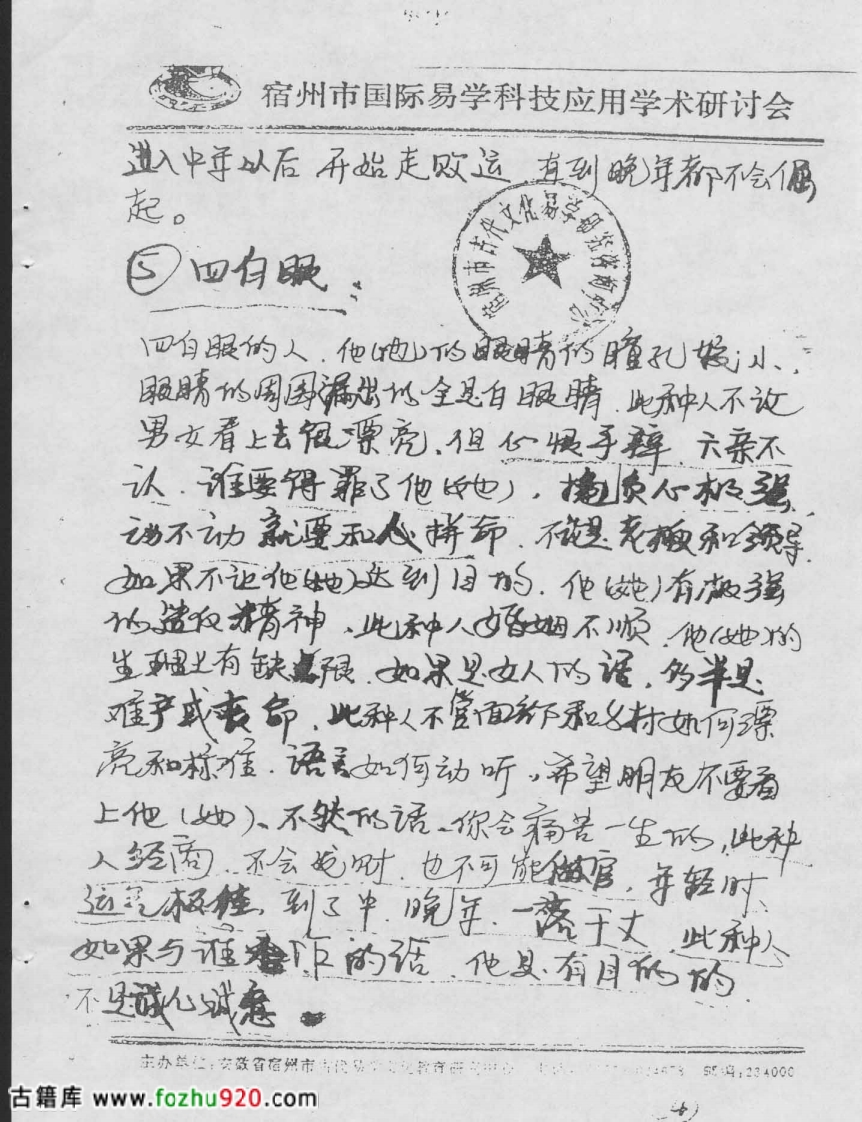 宿州市国际易学科技应用学术研讨会
进入中年以后 开始走败运 直到晚年都不会倔
起。
⑤ 四白眼：
宿州市古代文化易学研究咨商
四白眼的人、他(她)的眼睛的瞳孔极小、
眼睛的周围漏出的全是白眼睛、此种人不论
男女看上去很漂亮、但心恨手辣、六亲不
认、谁要得罪了他(她)，报负心极强
动不动就要和人拼命、不论是老板和领导、
如果不让他(她)达到目的、他(她)有极强
的造反精神、此种人婚姻不顺、他(她)的
生理上有缺限、如果是女人的话，多半是
难产或丧命、此种人不管面部和身材如何漂
亮和标准、语言如何动听，希望朋友不要看
上他(她)、不然的话、你会痛苦一生的，此种
人经商、不会发财、也不可能做官，年轻时、
运气极佳、到了中、晚年、一落千丈、此种人
如果与谁合作的话、他是有目的的
不是诚心诚意。
主办单位：安徽省宿州市古代易学文化教育研究中心 邮编：234000
古籍库 www.fozhu920.com